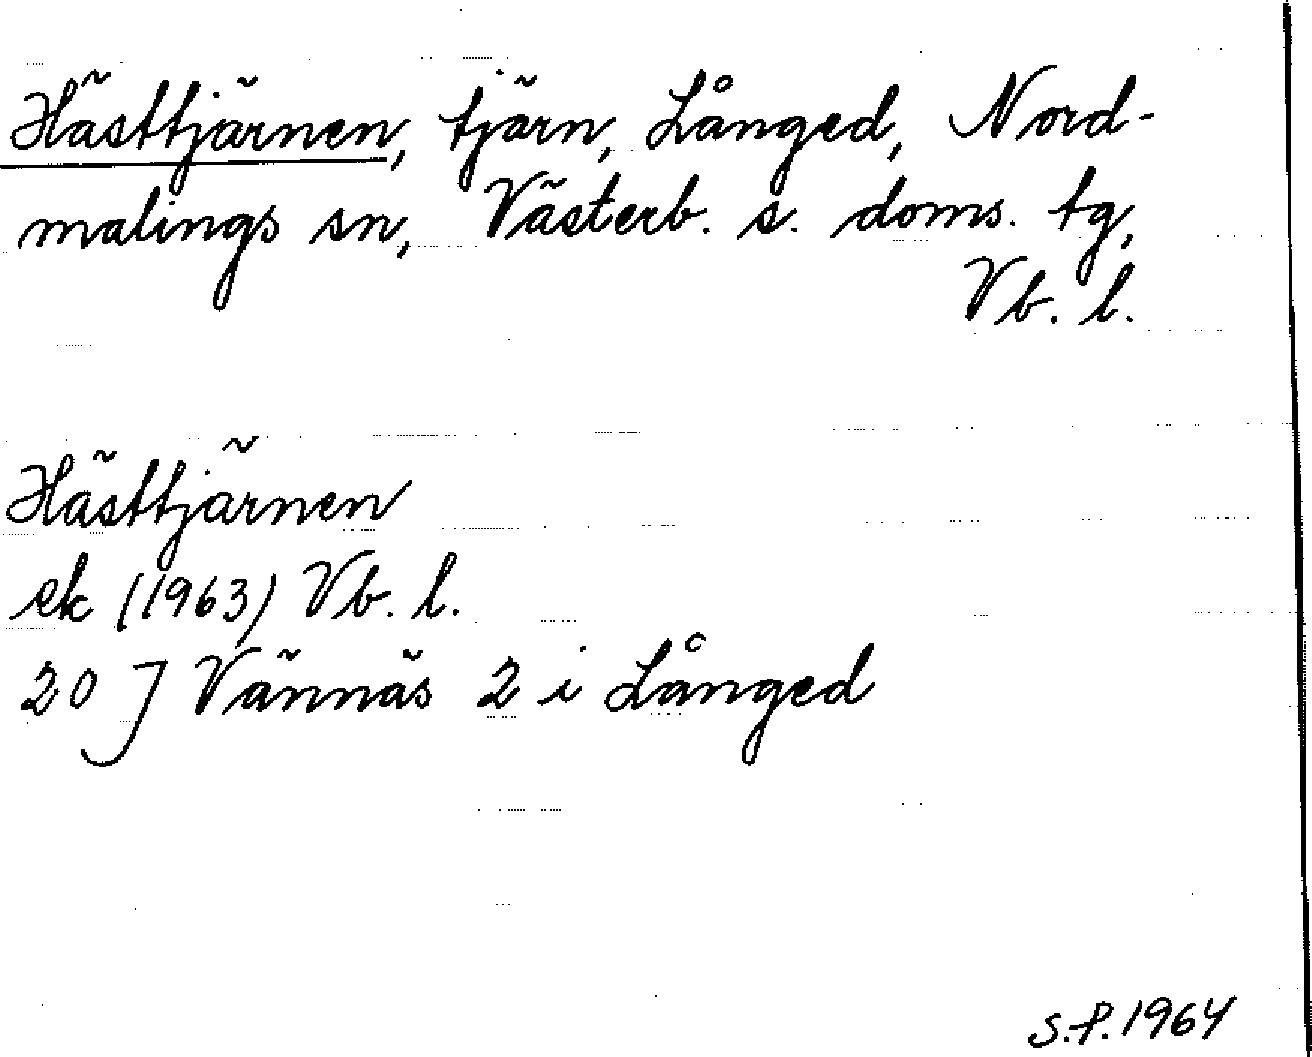 Hästtjärnen, tjärn, Långed, Nord-
malings sn, Västerb. s. doms. tg,
Vb. l.
Hästtjärnen
ek (1963) Vb. l.
20 J Vännäs 2 i Långed
S.P. 1964